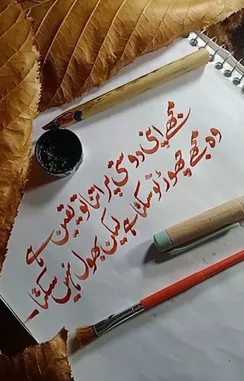 مجھے اپنی دوستی پر اتنا تو یقین ہے
وہ مجھے چھوڑ تو سکتا ہے لیکن بھول نہیں سکتا